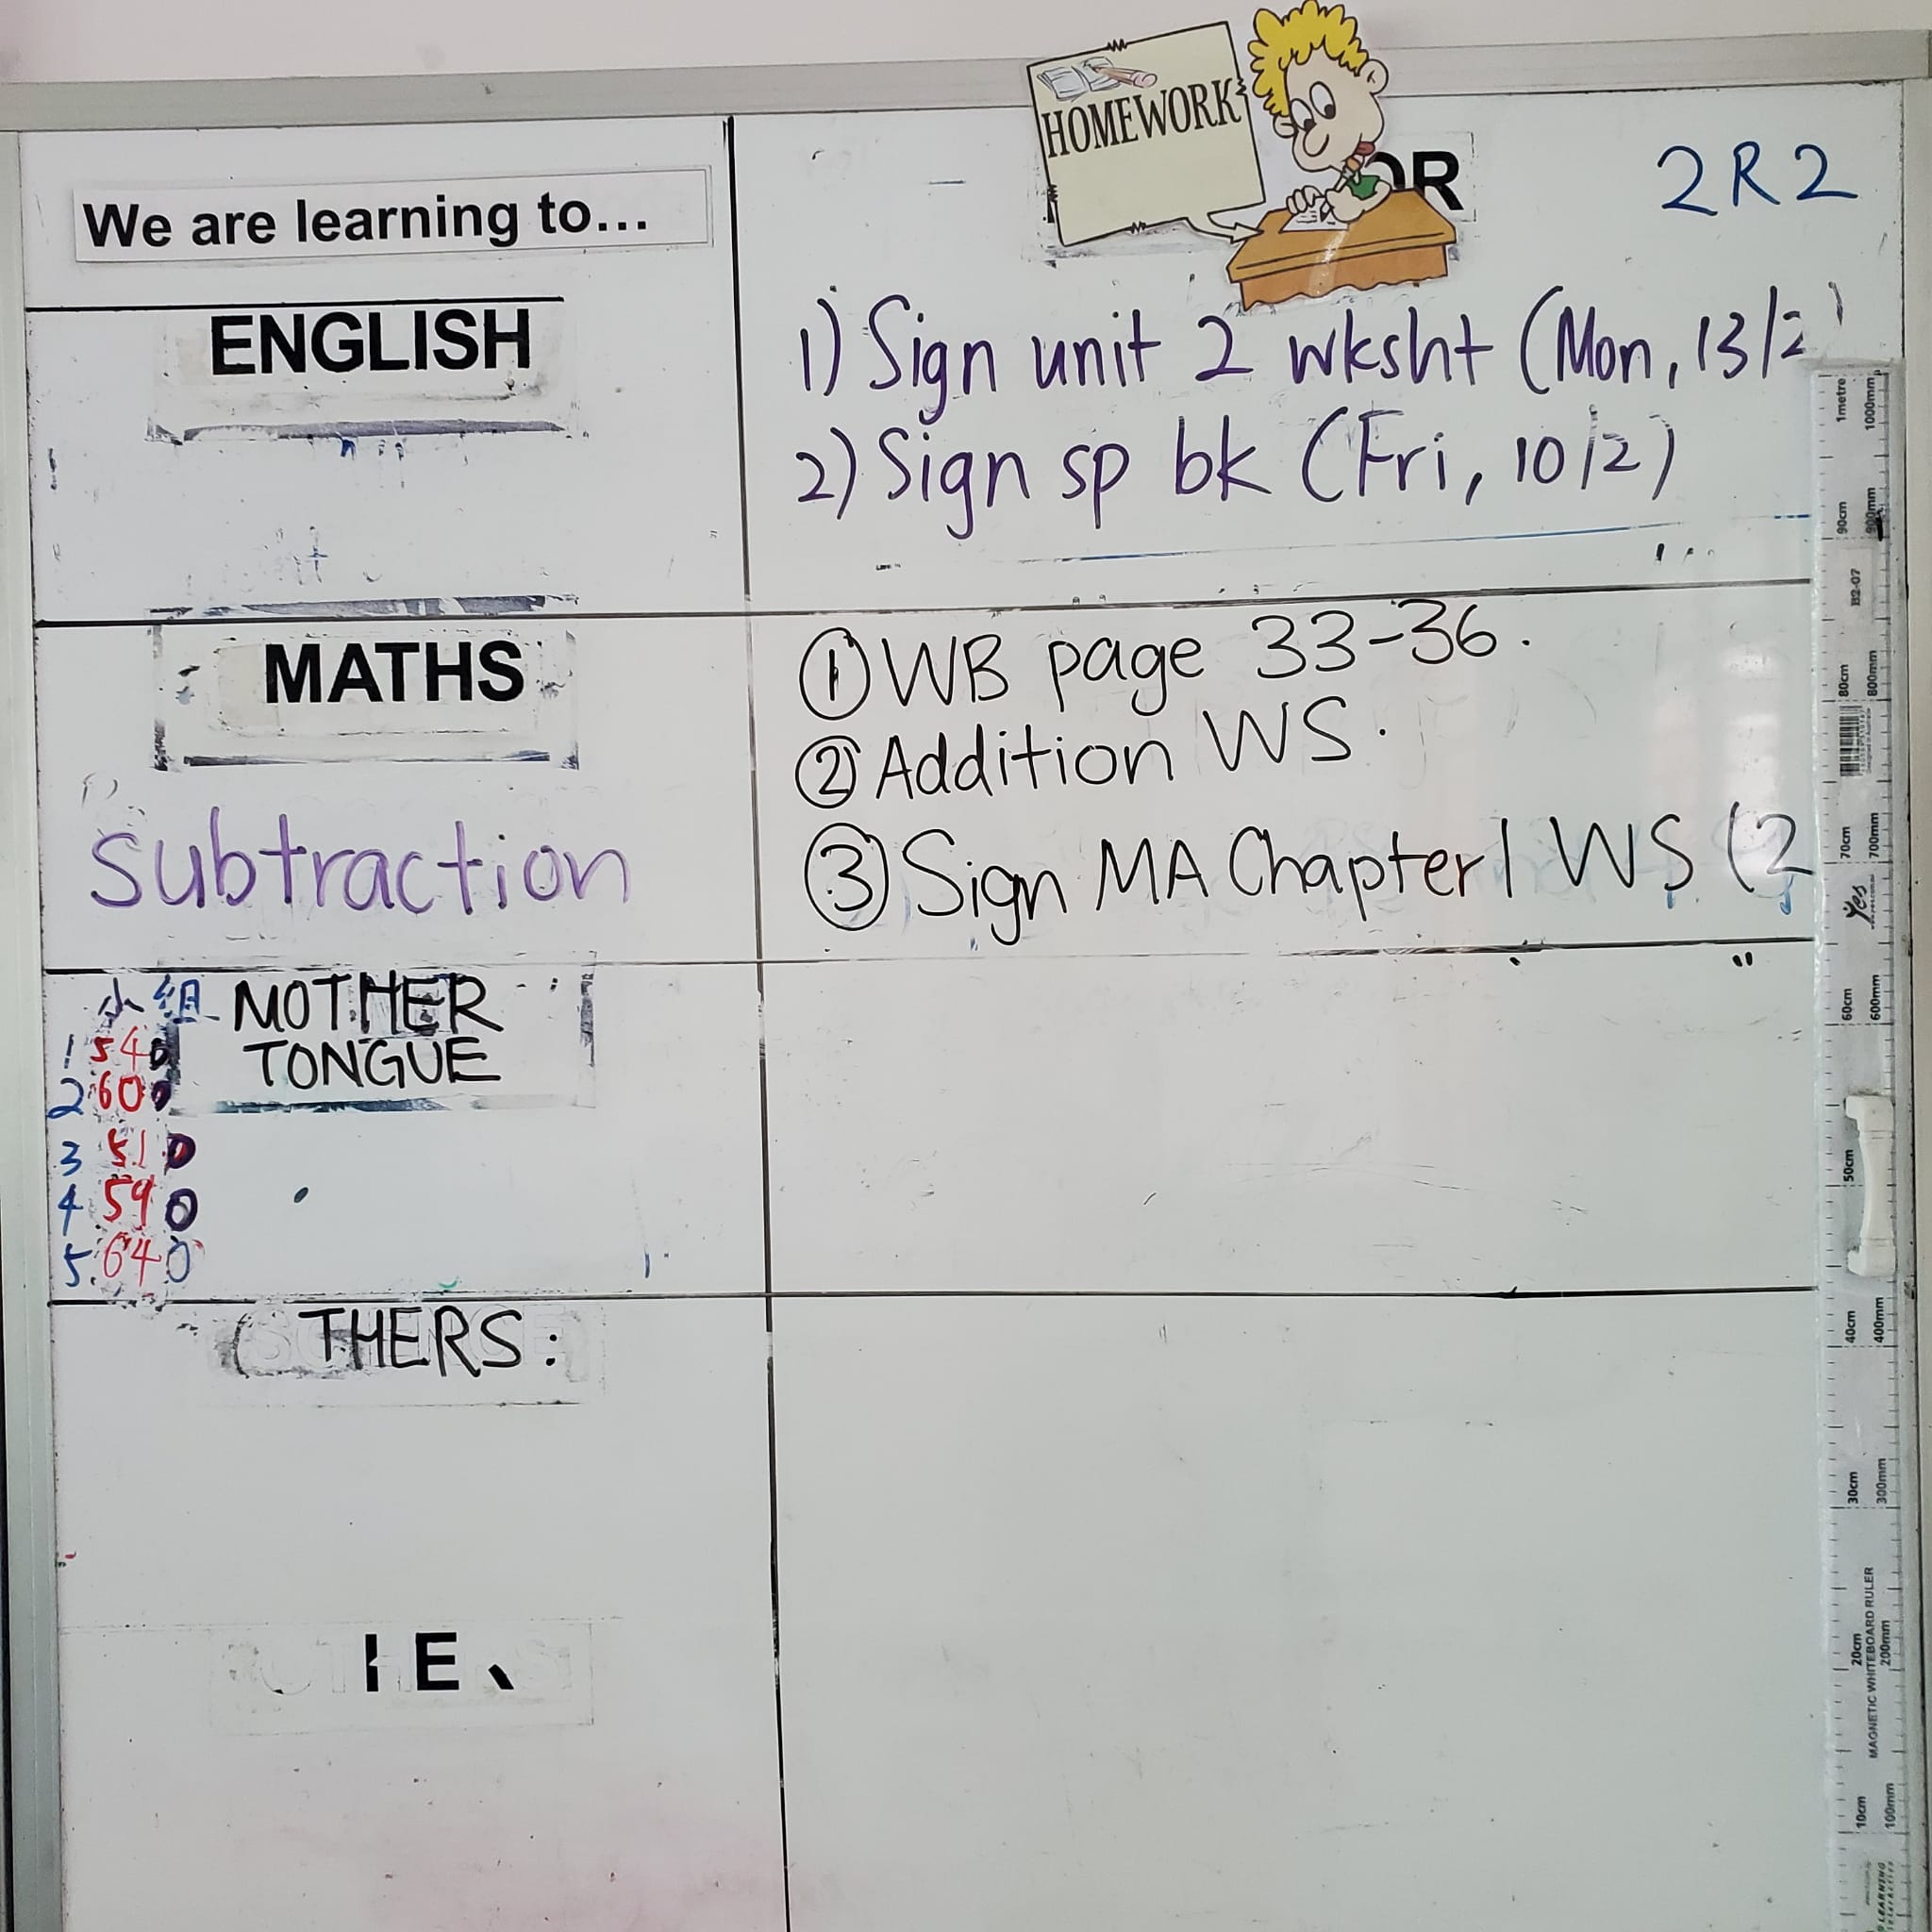 HOMEWORK
OR
2R2
We are learning to...
ENGLISH
1) Sign unit 2 wksht (Mon, 13/2)
2) Sign sp bk (Fri, 10/2)
MATHS
subtraction
① WB page 33-36.
② Addition WS.
③ Sign MA Chapter 1 WS (2
小组
MOTHER
TONGUE
1 54
2 60
3 51
4 59
5. 64
THERS:
I E
1metre 1000mm
90cm 900mm
B2-07
80cm 800mm
70cm 700mm
Yes
60cm 600mm
50cm
40cm 400mm
30cm 300mm
20cm 200mm
MAGNETIC WHITEBOARD RULER
10cm 100mm
LEARNING